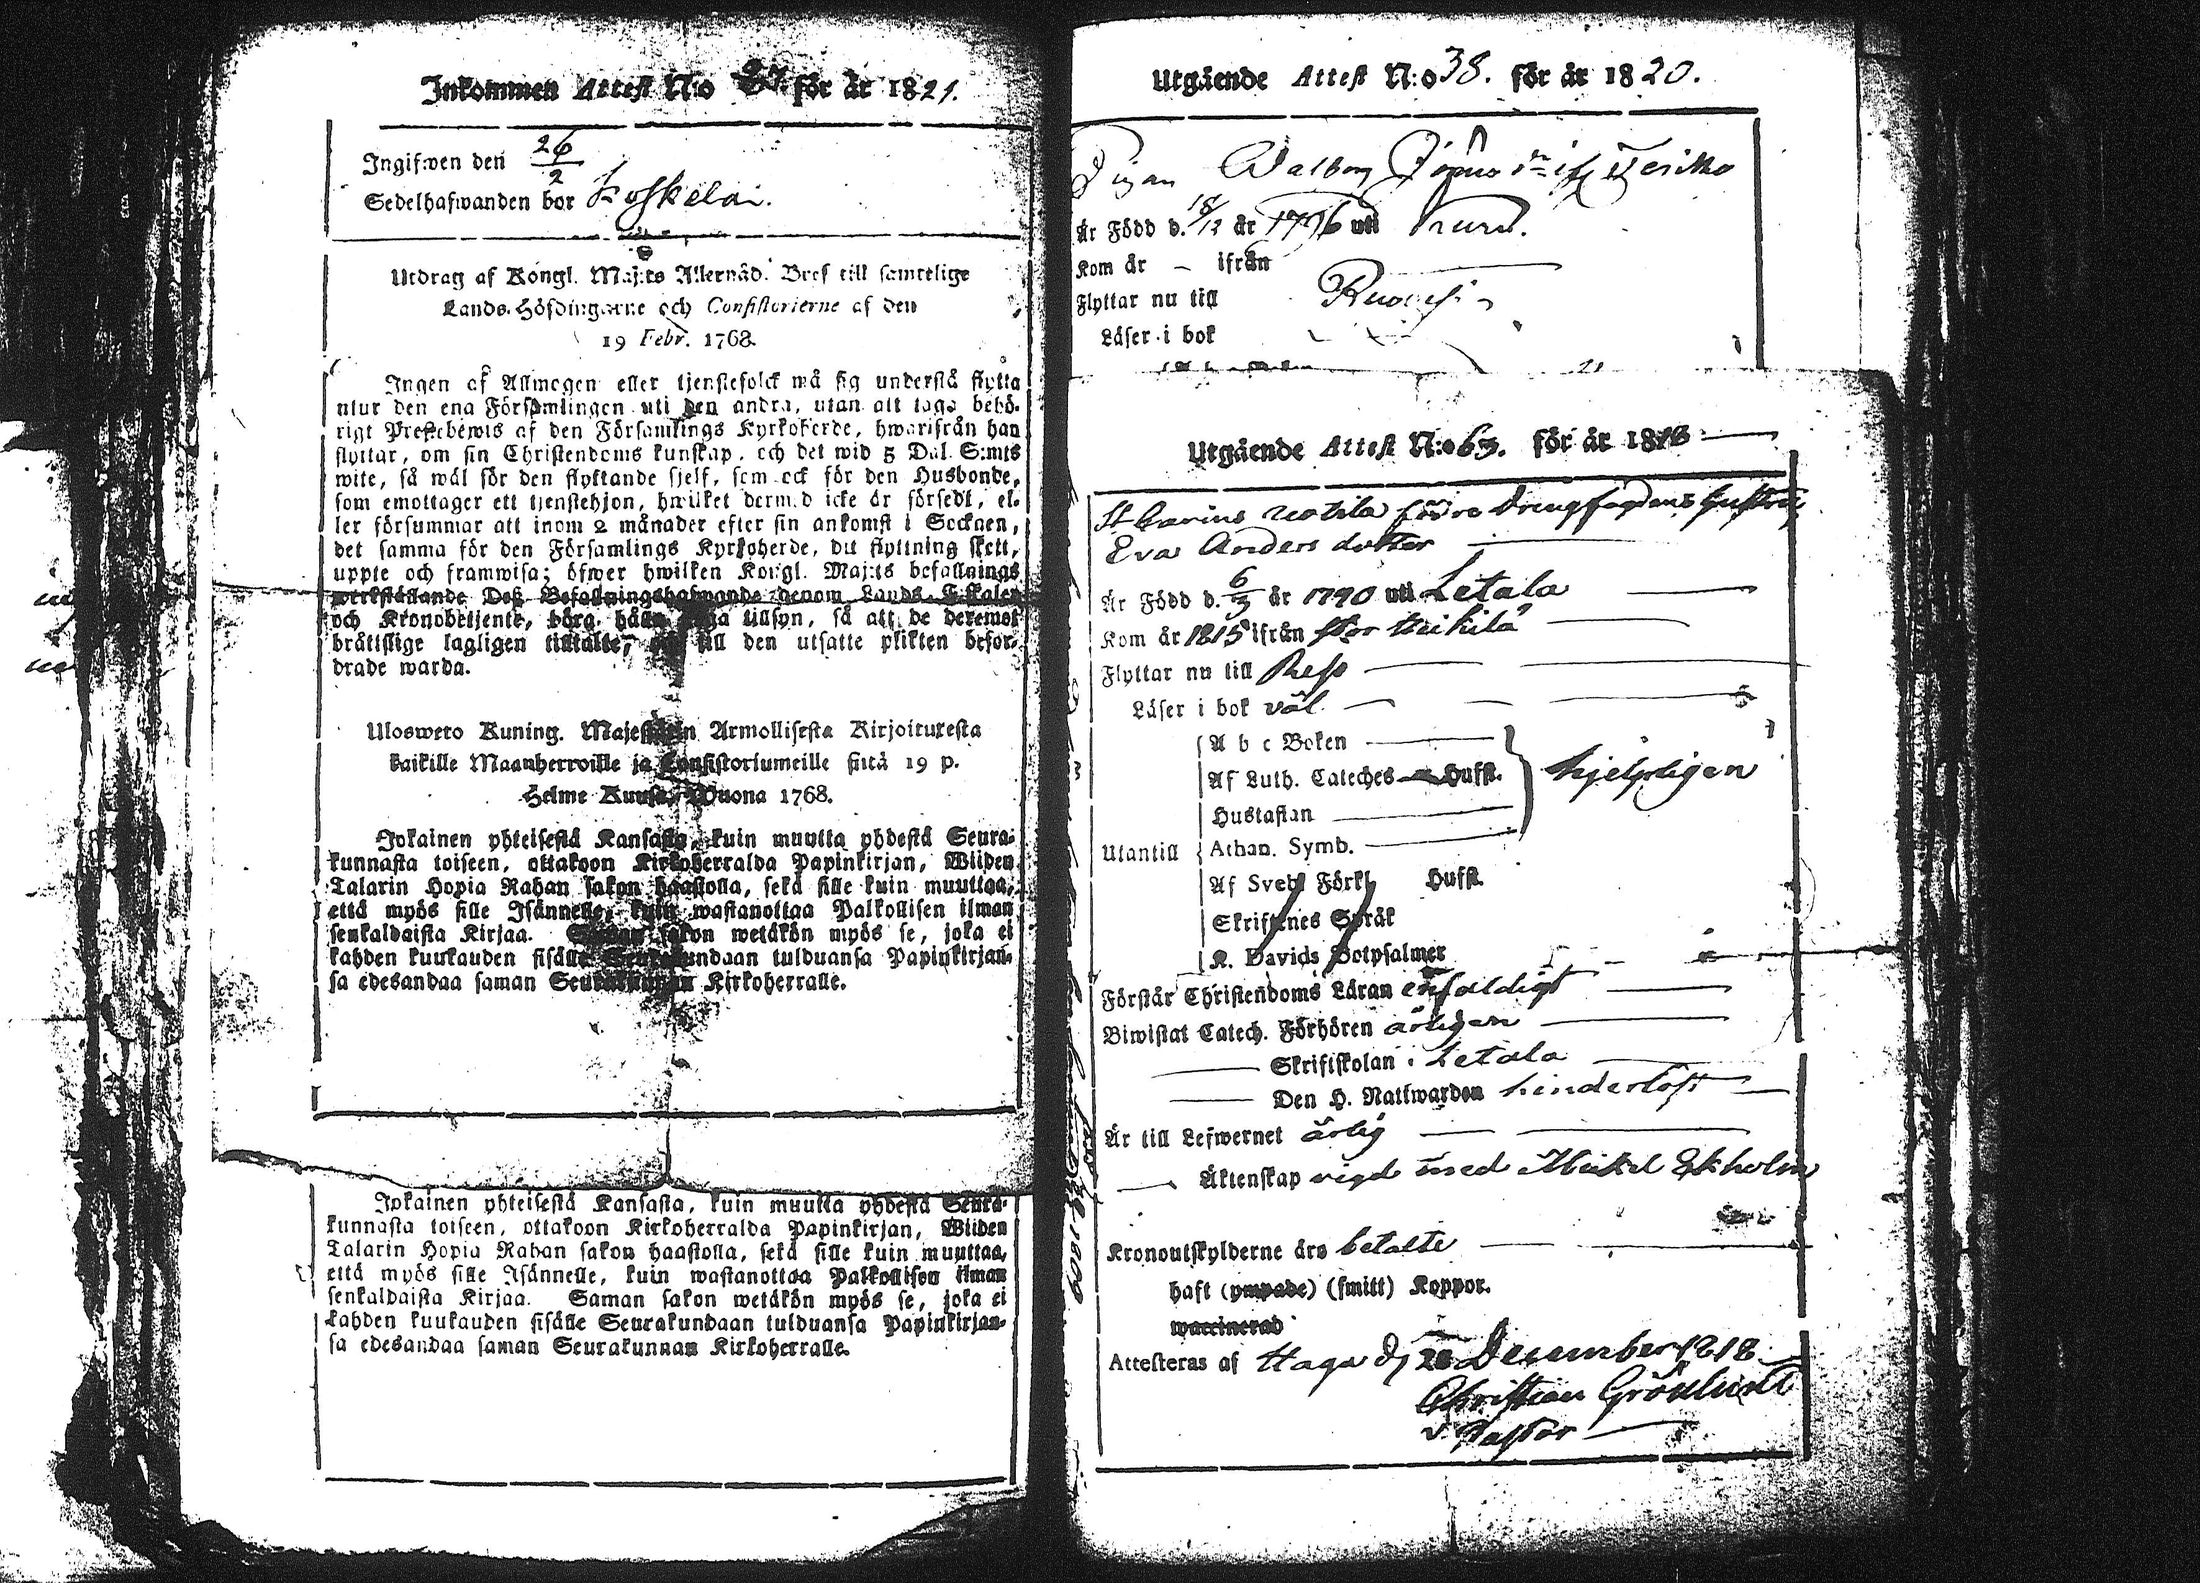 Inkommen Attest N:o 27. för år 1821.
Ingifwen den 26/2
Sedelhafwanden bor Koskela.
Utdrag af Kongl. Maj:ts Allernåd. Bref till samtelige
Lands-Höfdingarne och Consistorierne af den
19 Febr. 1768.
Ingen af Allmogen eller tjenstefolck må sig understå flytta
utur den ena Församlingen uti den andra, utan att taga behö-
rigt Prestebewis af den Församlings Kyrkoherde, hwarifrån han
flyttar, om sin Christendoms kunskap, och det wid 5 Dal. S:mts
wite, så wäl för den flyttande sjelf, som ock för den Husbonde,
som emottager ett tjenstehjon, hwilket dermed icke är försedt, el-
ler försummar att inom 2 månader efter sin ankomst i Socknen,
det samma för den Församlings Kyrkoherde, dit flyttning skett,
uppte och framwisa; öfwer hwilken Kongl. Maj:ts befallnings
werkställande Deß Befallningshafwande genom Lands-Fiskaler
och Kronobetjente, böra hålla noga tillsyn, så att de deremot
bråtislige lagligen tilltalte, och till den utsatte plikten befor-
drade warda.
Ulosweto Kuning. Majestetin Armollisesta Kirjoituxesta
kaikille Maanherroille ja Consistoriumeille siitä 19 p.
Helme Kuusa, Wuona 1768.
Jokainen yhteisestä Kansasta, kuin muutta yhdestä Seura-
kunnasta toiseen, ottakoon Kirkoherralda Papinkirjan, Wiiden
Talarin Hopia Rahan sakon haastolla, sekä sille kuin muuttaa,
että myös sille Isännelle, kuin wastanottaa Palkollisen ilman
senkaldaista Kirjaa. Saman sakon wetäkön myös se, joka ei
kahden kuukauden sisälle Seurakundaan tulduansa Papinkirjan-
sa edesandaa saman Seurakunnan Kirkoherralle.
Jokainen yhteisestä Kansasta, kuin muutta yhdestä Seura-
kunnasta toiseen, ottakoon Kirkoherralda Papinkirjan, Wiiden
Talarin Hopia Rahan sakon haastolla, sekä sille kuin muuttaa,
että myös sille Isännelle, kuin wastanottaa Palkollisen ilman
senkaldaista Kirjaa. Saman sakon wetäkön myös se, joka ei
kahden kuukauden sisälle Seurakundaan tulduansa Papinkirjan-
sa edesandaa saman Seurakunnan Kirkoherralle.
Utgående Attest N:o 38. för år 1820.
Pigan Walborg
Är Född d. 18/12 år 1796 uti
Kom år – ifrån
Flyttar nu till
Läser i bok
Utgående Attest N:o 63. för år 1818
Eva Anders dotter
Är Född d. 6/3 år 1790 uti Letala
Kom år 1815 ifrån
Flyttar nu till Reso
Läser i bok väl
A b c Boken
Af Luth. Cateches Hufst.
Hustaflan
hjelpligen
Utantill Athan. Symb.
Af Sveb. Förkl. Hufst.
Skriftenes Språk
K. Davids Botpsalmer
Förstår Christendoms Läran enfaldigt
Biwistat Catech. Förhören årligen
Skriftskolan i Letala
Den H. Nattwarden hinderlöst
Är till Lefwernet ärlig
Äktenskap vigd med Mickel Ekholm
Kronoutskylderne äro betalte
haft (ympade) (smitt) Koppor.
waccinerad
Attesteras af Haga d. 28 December 1818
Christian Grönlund
v. Pastor